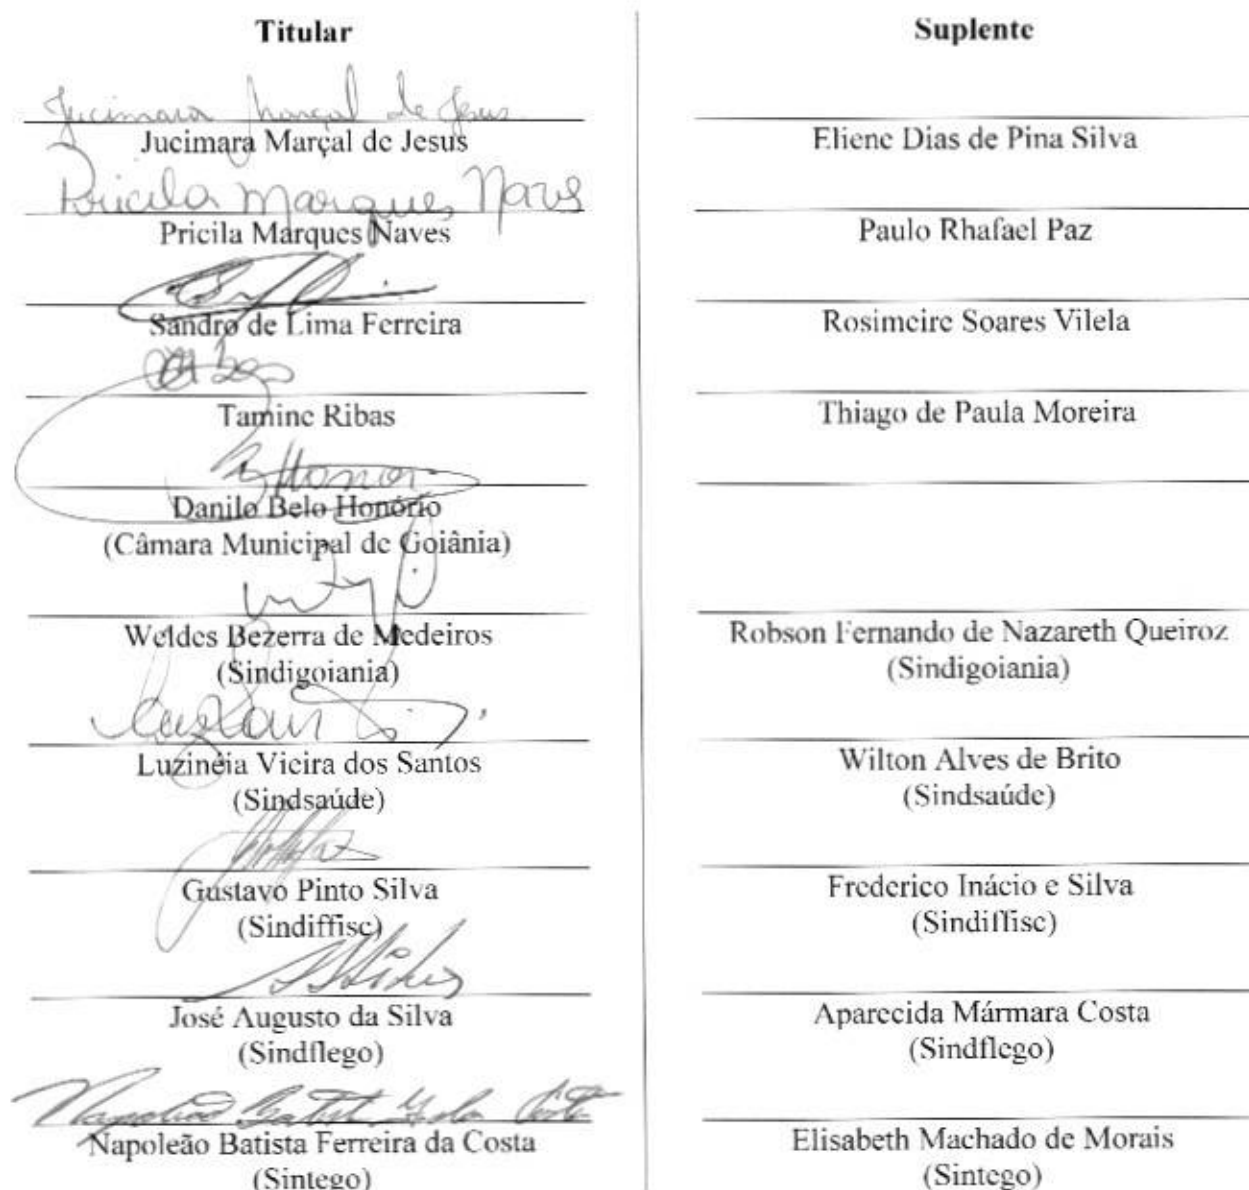 Titular
Jucimara Marçal de Jesus
Jucimara Marçal de Jesus
Pricila Marques Naves
Pricila Marques Naves
Sandro de Lima Ferreira
Tamine Ribas
Honor
Danilo Belo Honório
(Câmara Municipal de Goiânia)
Weldes Bezerra de Medeiros
(Sindigoiania)
Luzinéia Vieira dos Santos
(Sindsaúde)
Gustavo Pinto Silva
(Sindiffisc)
José Augusto da Silva
(Sindflego)
Napoleão Batist
Napoleão Batista Ferreira da Costa
(Sintego)
Suplente
Eliene Dias de Pina Silva
Paulo Rhafael Paz
Rosimeire Soares Vilela
Thiago de Paula Moreira
Robson Fernando de Nazareth Queiroz
(Sindigoiania)
Wilton Alves de Brito
(Sindsaúde)
Frederico Inácio e Silva
(Sindiffisc)
Aparecida Mármara Costa
(Sindflego)
Elisabeth Machado de Morais
(Sintego)